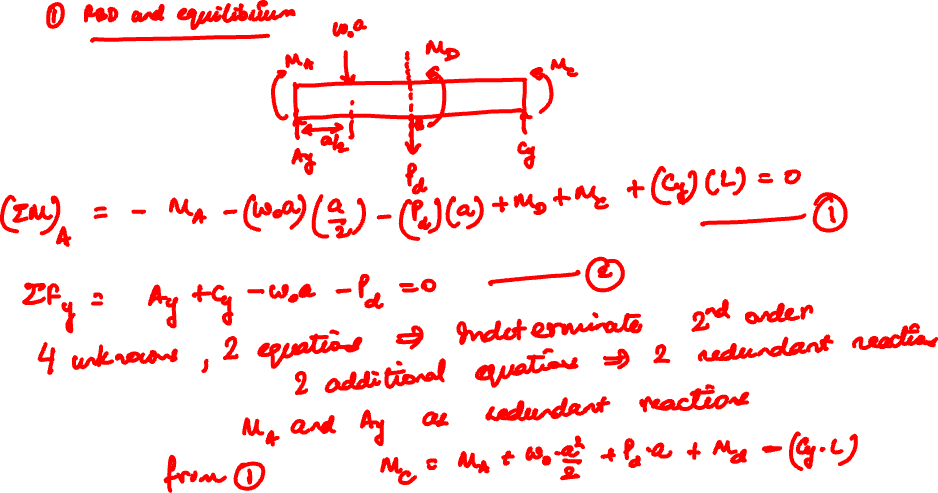 ① FBD and equilibrium
w₀a
M_A M_D M_C
a/2
A_y P_d C_y
(ΣM)_A = - M_A - (w₀a)(a/2) - (P_d)(a) + M_D + M_C + (C_y)(L) = 0 ①
ΣF_y = A_y + C_y - w₀a - P_d = 0 ②
4 unknowns, 2 equations ⇒ Indeterminate 2nd order
2 additional equations ⇒ 2 redundant reactions
M_A and A_y as redundant reactions
from ① M_C = M_A + w₀·a²/2 + P_d·a + M_d - (C_y·L)